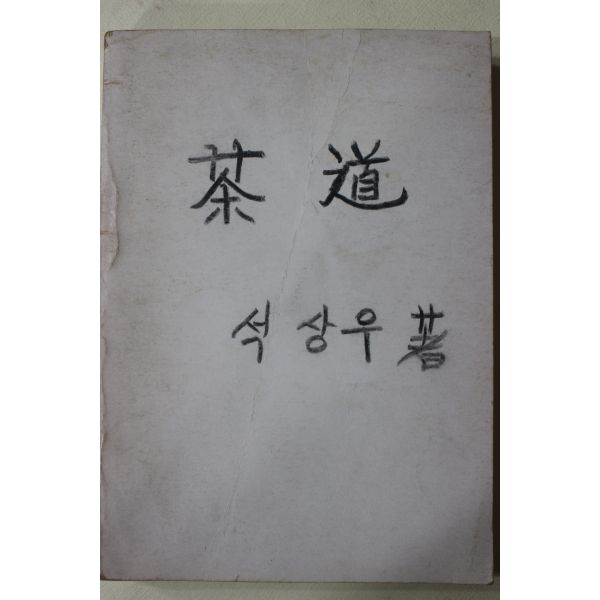 茶道
석상우 著